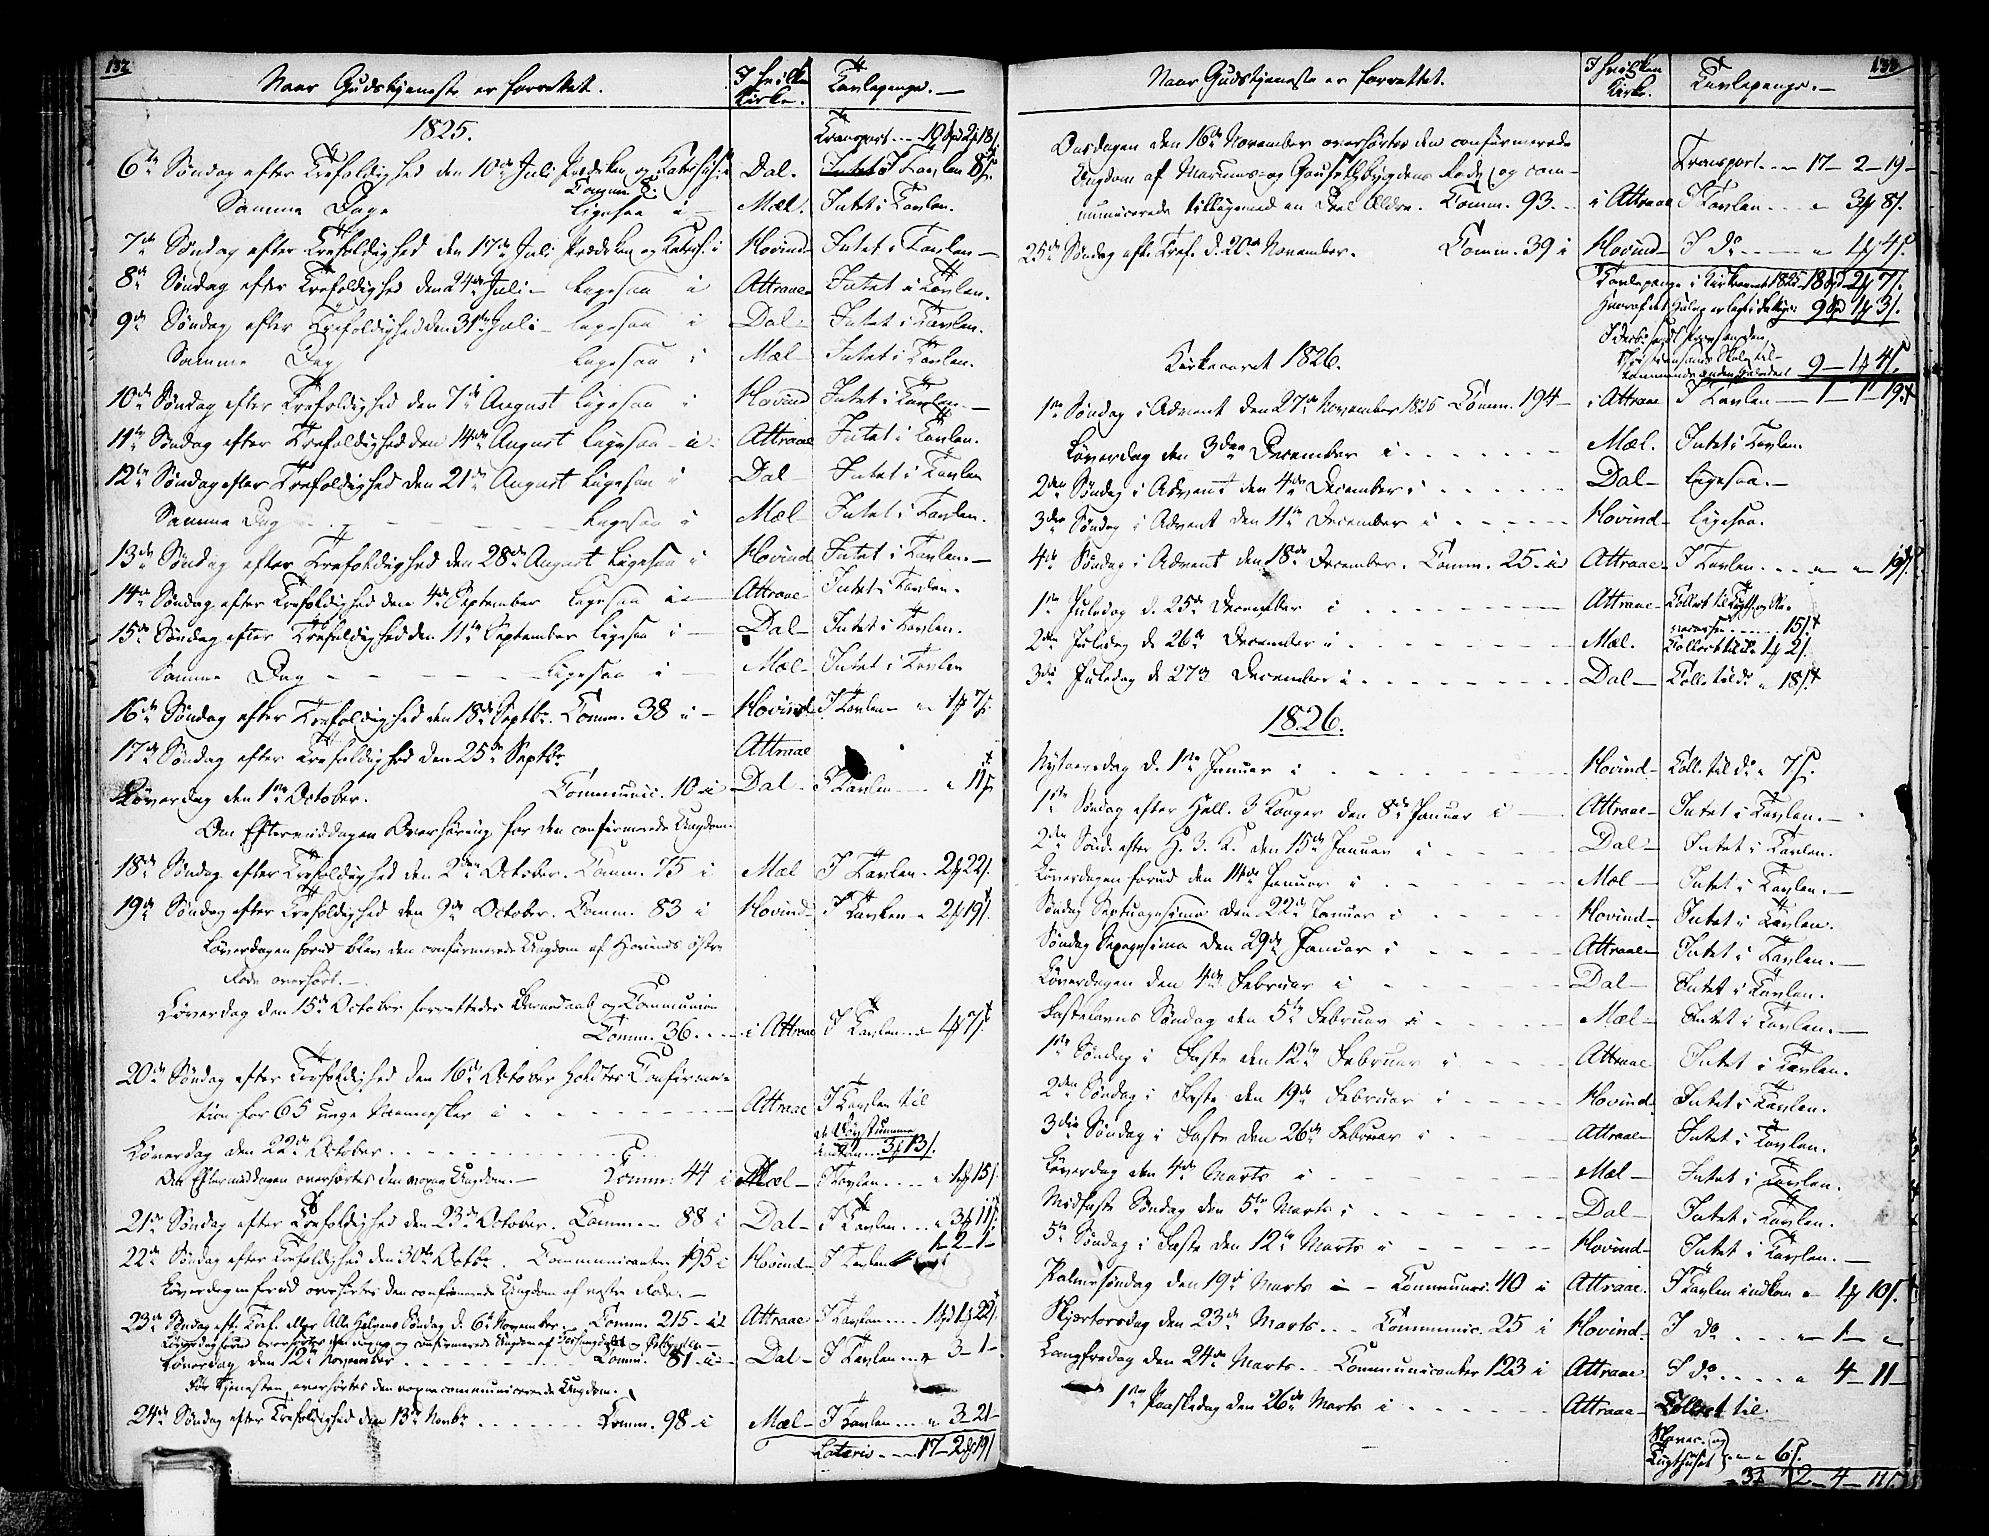 132
Naar Gudstjeneste er forrettet.
I hvilken Kirke.
Tavlepenge.
1825.
Transport - 10 Spd 2 # 18 s
6te Søndag efter Trefoldighed den 10de Juli Prædiken og Catechis: i Dal. Intet i Tavlen
Samme Dag ligesaa i Mæl. Intet i Tavlen.
7de Søndag efter Trefoldighed den 17de Juli Prædiken og Catech. i Hovind Intet i Tavlen
8de Søndag efter Trefoldighed den 24de Juli - ligesaa i Attraae Intet i Tavlen.
9de Søndag efter Trefoldighed den 31te Juli - ligesaa i Dal - Intet i Tavlen.
Samme Dag ligesaa i Mæl - Intet i Tavlen.
10de Søndag efter Trefoldighed den 7de August ligesaa i Hovind Intet i Tavlen. -
11te Søndag efter Trefoldighed den 14de August ligesaa i Attraae Intet i Tavlen.
12te Søndag efter Trefoldighed den 21de August ligesaa i Dal - Intet i Tavlen
Samme Dag - ligesaa i Mæl - Intet i Tavlen.
13de Søndag efter Trefoldighed den 28de August ligesaa i Hovind Intet i Tavlen. -
14de Søndag efter Trefoldighed den 4de September ligesaa i - Attraae Intet i Tavlen.
15de Søndag efter Trefoldighed den 11te September ligesaa i - Dal - Intet i Tavlen.
Samme Dag - ligesaa i - Mæl - Intet i Tavlen
16de Søndag efter Trefoldighed den 18de Septbr. Comm. 38 i - Hovind I Tavlen - " 1 # 7 s
17de Søndag efter Trefoldighed den 25de Septbr Attraae
Løverdag den 1ste October. Communic. 10 i Dal - I Tavlen - " 11 s
Om Eftermiddagen Overhøring for den confirmerede Ungdom.
18de Søndag efter Trefoldighed den 2den October. Comm. 75 i Mæl I Tavlen - 2 # 22 s.
19de Søndag efter Trefoldighed den 9de October. Comm. 83 i Hovind I Tavlen - 2 # 19 s.
Løverdagen forud blev den confirmerede Ungdom af Hovinds østre
Rode overhørt. -
Løverdag den 15de October forrettedes Communion
Comm. 36 - i Attraae I Tavlen - 1 # 7 s.
20de Søndag efter Trefoldighed den 16de October holdtes Confirma-
tion for 65 unge Mennesker i - Attraae I Tavlen til
3 # 13 s.
Løverdag den 22de October
Om Eftermiddagen overhørtes den Ungdom. - Comm. 44 i Mæl - I Tavlen - " 1 # 15 s
21de Søndag efter Trefoldighed den 23de October. Comm. - 88 i Dal - I Tavlen - " 3 # 11 s.
22de Søndag efter Trefoldighed den 30te Octbr. Communicanter 195 i Hovind - I Tavlen 1 - 2 - 1 -
Løverdagen forud overhørtes den confirmerede Ungdom af vestre Rode. -
23de Søndag eft. Tref. eller Alle Helgens Søndag d. 6te November. Comm. 215 - i Attraae I Tavlen - 1 Spd 1 # 22 s.
Løverdag den 12te November - Comm. 81 - i - Dal - I Tavlen - " 3 - 1 -
Før Tjenesten overhørtes den communicerende Ungdom.
24de Søndag efter Trefoldighed den 13de Novbr - Comm. 98 - i Mæl - I Tavlen - " 3 - 21 -
Lateris - 17 - 2 # 19 s
133
Naar Gudstjeneste er forrettet.
I hvilken Kirke.
Tavlepenge. -
Onsdagen den 16de November overhørtes den confirmerede
Ungdom af og Rode, og com-
municerede tilligemed en Deel Ældre. Comm. 93 - i Attraae I Tavlen - " 3 # 8 s.
Transport - 17 - 2 - 19 -
25de Søndag eft. Tref. d. 20de November. Comm. 39 i Hovind - I do - " 1 # 4 s.
Tavlepenge i Kirkeaaret 1825 - 18 Spd - 2 # 7 s.
9 Spd 1 # 3 s.
9 - 1 # 4 s.
Kirkeaaret 1826.
1ste Søndag i Advent den 27de November 1825 Comm. 194 - i Attraae I Tavlen - 1 - 1 - 19 s
Løverdag den 3die December i - Mæl. Intet i Tavlen.
2den Søndag i Advent den 4de December i - Dal - ligesaa. -
3die Søndag i Advent den 11te December i - Hovind - ligesaa.
4de Søndag i Advent den 18de December. Comm. 25 - i Attraae - I Tavlen - " - " - 19 s.
1ste Juledag d. 25de December i - Attraae - Collect til
15 s.
2den Juledag d. 26de December i - Mæl. Collect til do 1 # 2 s.
3die Juledag d. 27de December i - Dal - Coll. til do " 18 s.
1826.
Nytaarsdag d. 1ste Januar i - Hovind - Coll. til do " 7 s.
1ste Søndag efter Hell. 3 Konger den 8de Januar i - Attraae - Intet i Tavlen. -
2den Sønd. efter H. 3. K. den 15de Januar i - Dal - Intet i Tavlen.
Løverdagen forud den 14de Januar i - Mæl - Intet i Tavlen. -
Søndag Septuagesima den 22de Januar i - Hovind - Intet i Tavlen.
Søndag Sexagesima den 29de Januar i - Attraae - Intet i Tavlen. -
Løverdagen den 4de Februar i - Dal - Intet i Tavlen.
Fastelavns Søndag den 5te Februar i - Mæl - Intet i Tavlen. -
1ste Søndag i Faste den 12te Februar i - Attraae Intet i Tavlen.
2den Søndag i Faste den 19de Februar i - Hovind - Intet i Tavlen.
3die Søndag i Faste den 26de Februar i - Attraae - Intet i Tavlen.
Løverdag den 4de Marts i - Mæl - Intet i Tavlen.
Midfaste Søndag den 5te Marts i - Dal - Intet i Tavlen.
5te Søndag i Faste den 12te Marts i - Hovind - Intet i Tavlen. -
Palmesøndag den 19de Marts i - Communic. 40 i Attraae. I Tavlen indkom " 1 # 10 s.
Skjærtorsdag den 23de Marts - Communic. 25 i Hovind - I do - " 1 - "
Langfredag den 24de Marts - Communicanter 123 i Attraae I do - " 4 - 11 -
1ste Paaskedag den 26de Marts i - Attraae - Collect til
Slaver- og
Tugthuset - " 6 s.
2 - 4 - 11 s.